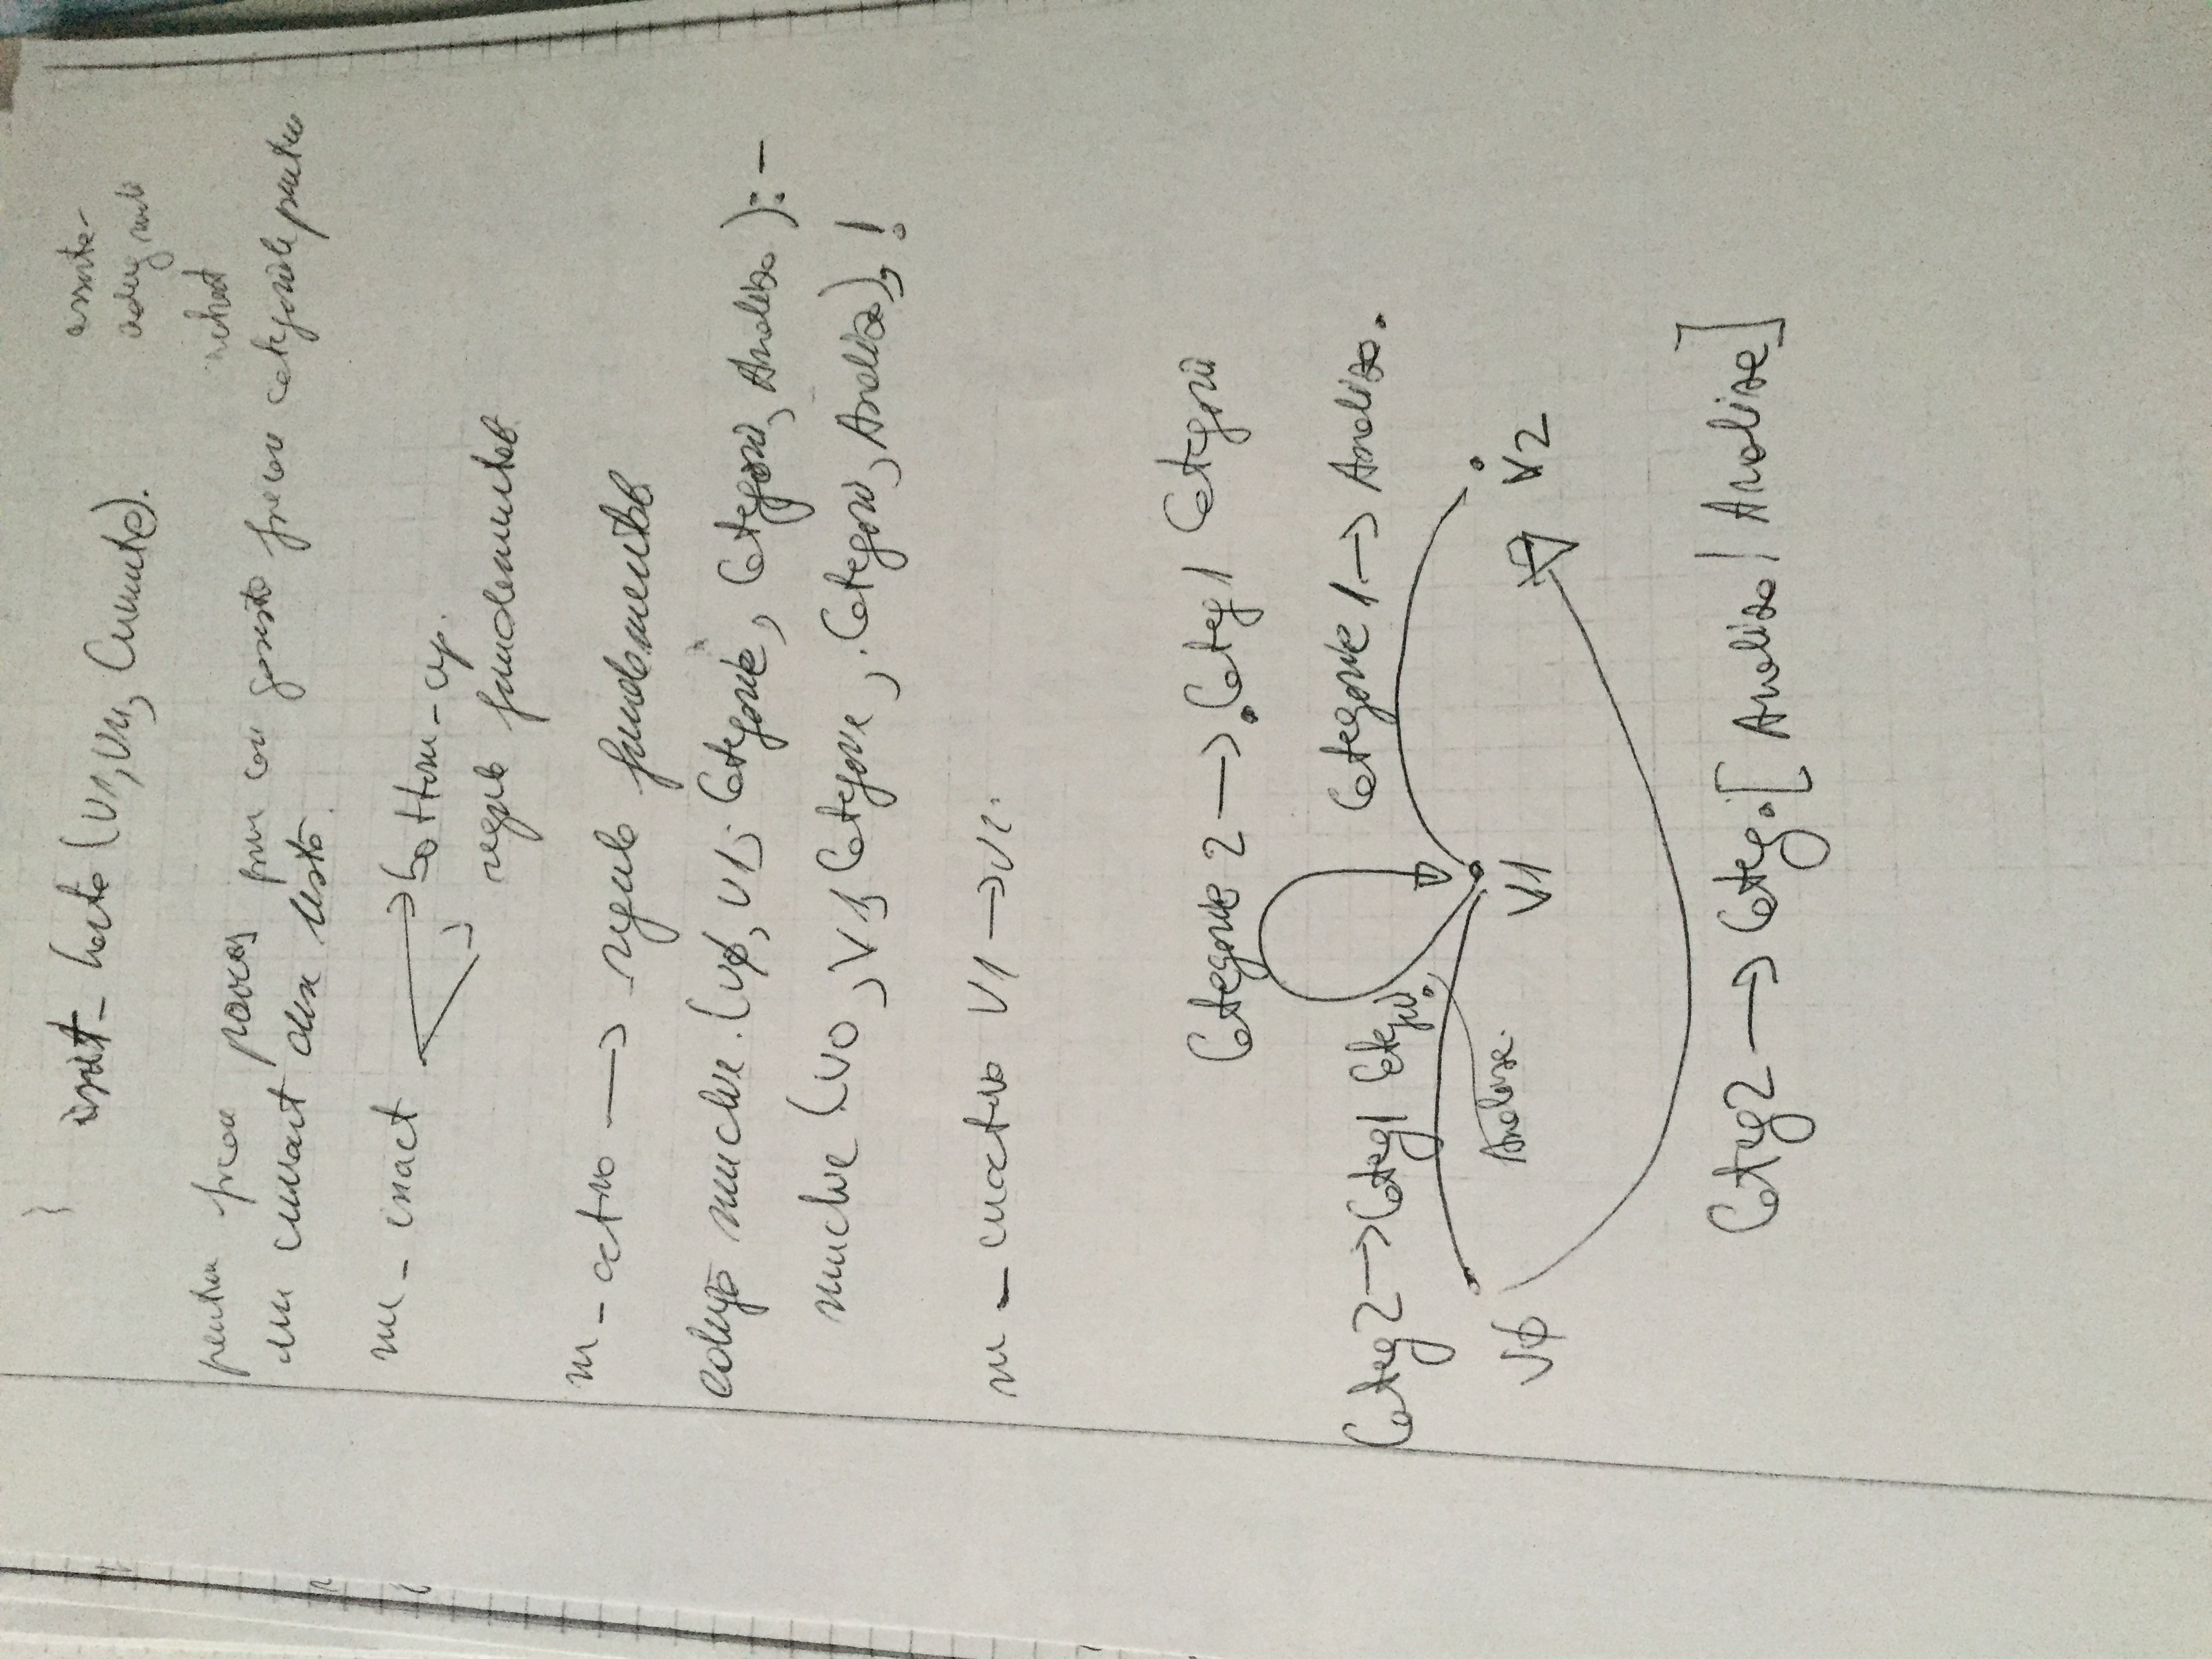 init_harta (V1, Vn, Cuvinte).
adaug
pentru fiecare proces prin care gaseste fiecare categorie pentru
un cuvant din lista.
m_inact → bottom-up.
→ regula fundamentala
m_activa → regula fundamentala
adaugă muchie (V0, V1, Categorie, Categorii, Analiza) :-
muchie (V0, V1, Categorie, Categorii, Analiza), !
m_inactiva V1 → V2.
Categorie 2 → .Categ1 Categorii
Categ2 → Categ1 Categorii.
Categorie 1 → Analiza.
Analize.
V0 V1 V2
Categ2 → Categ. [Analiza | Analize]